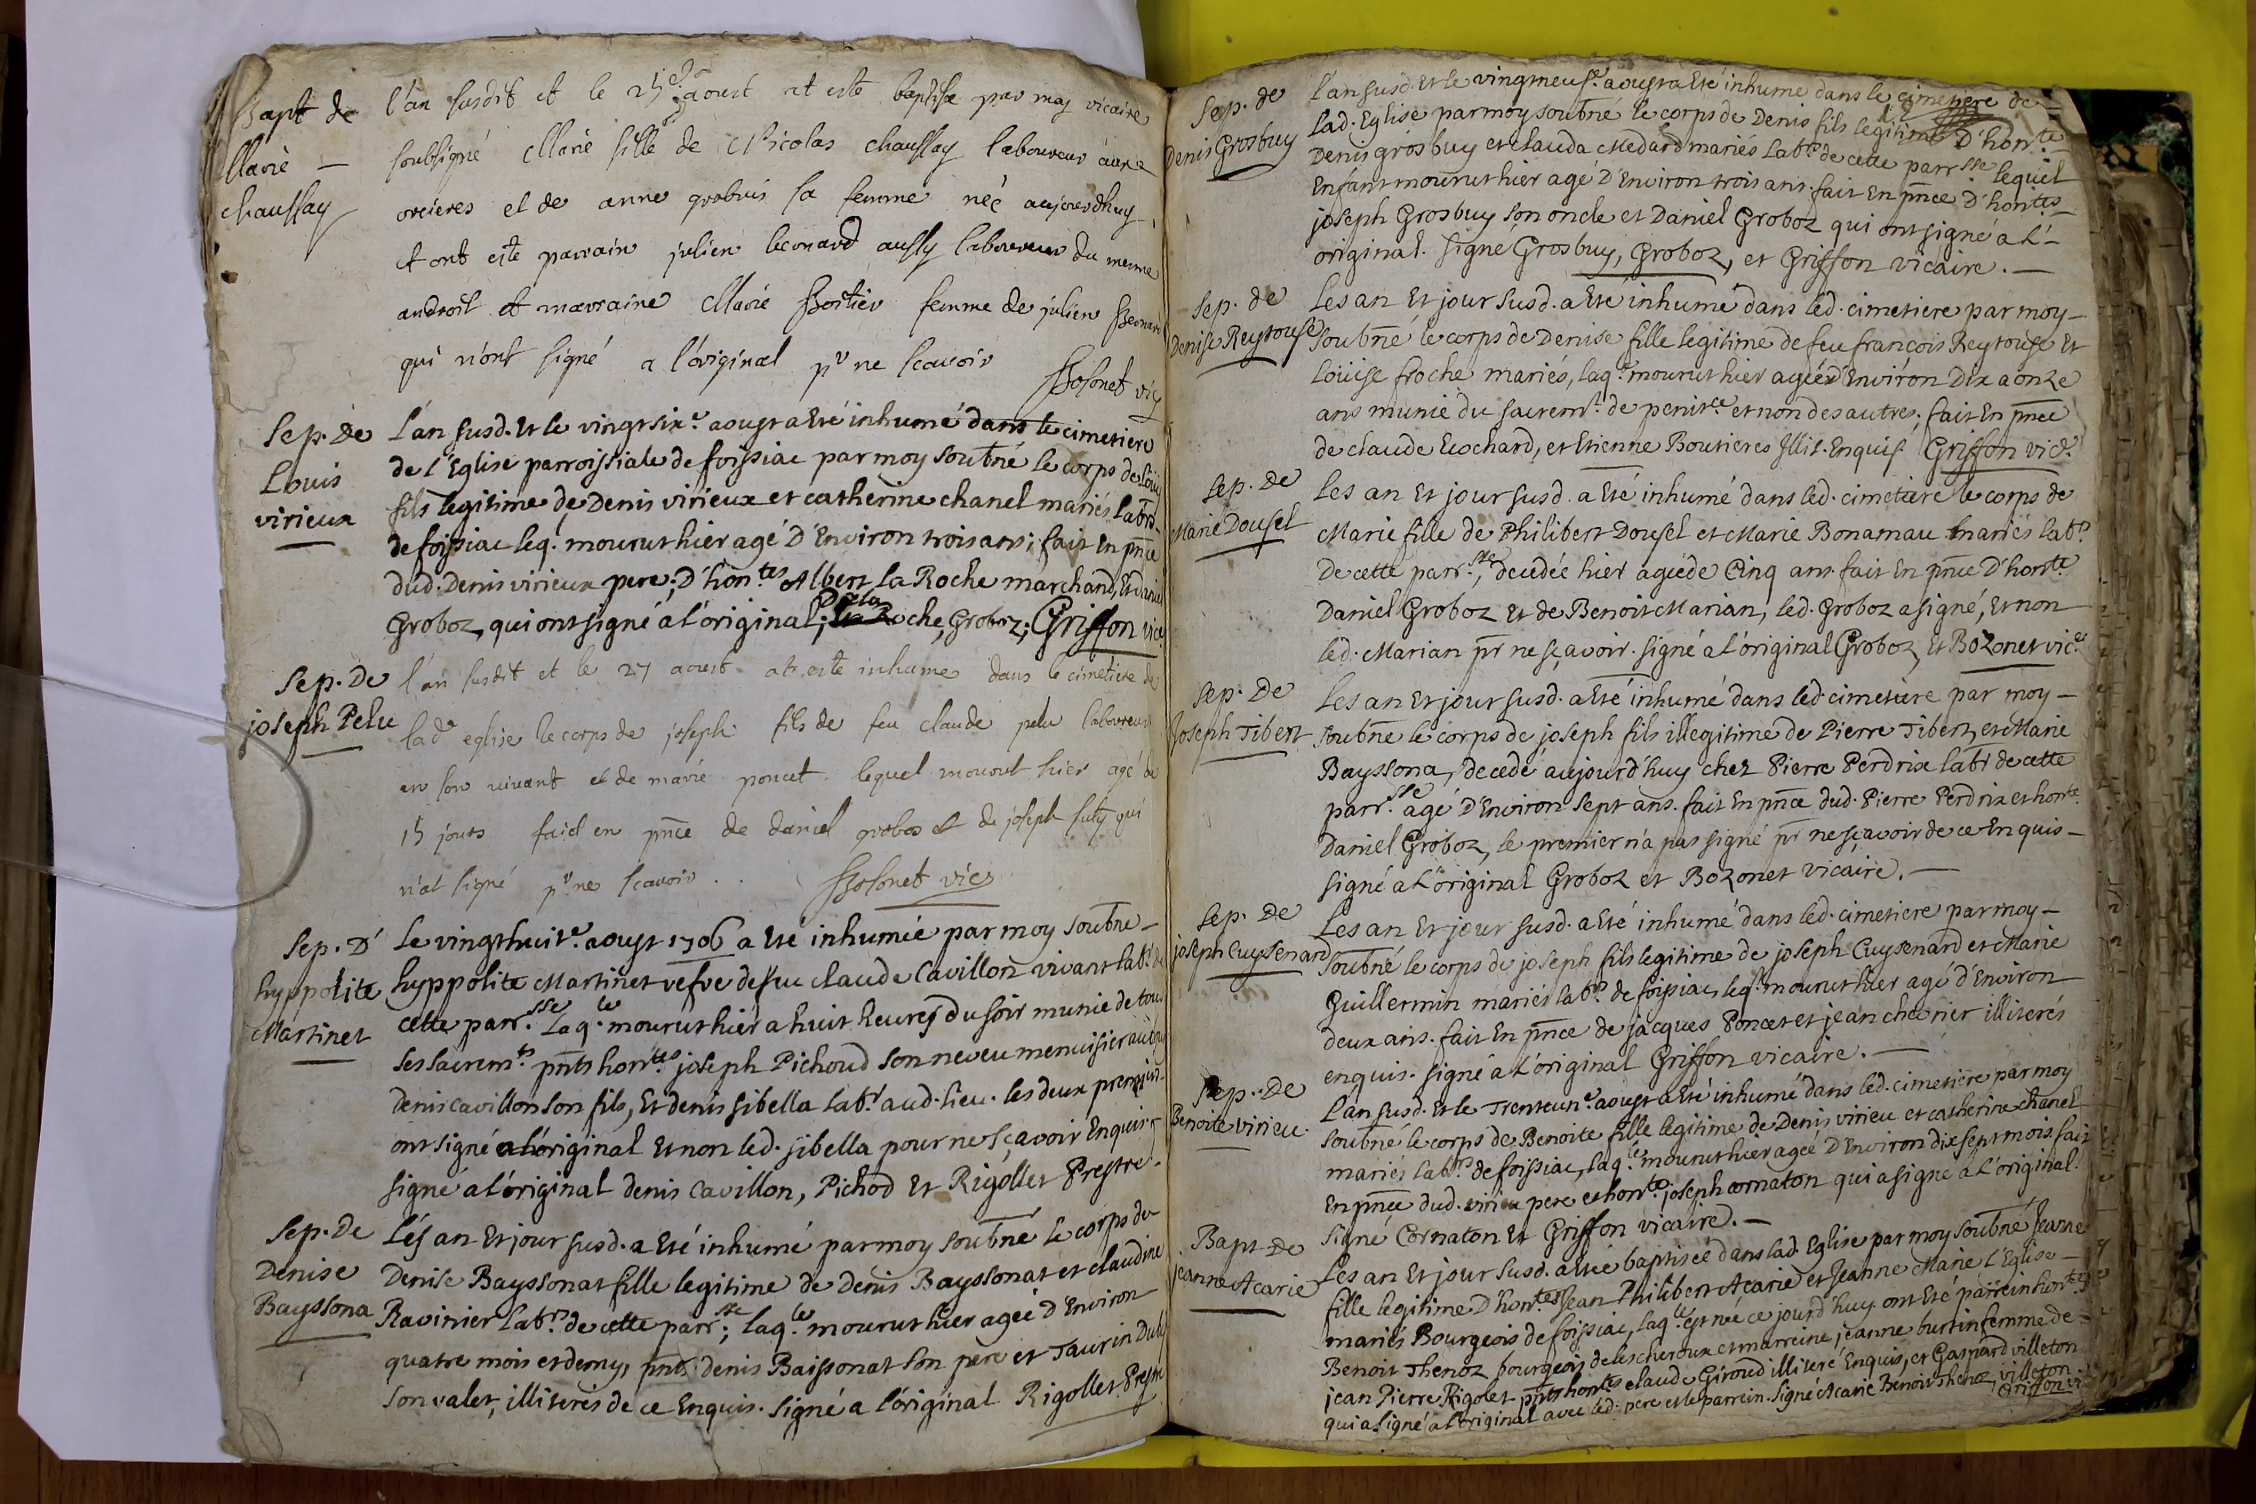 Bapt de
Marie
chaussay
l'an susdit et le 25e aoust at este baptisé par moy vicaire
soubsigné Marie fille de Nicolas chaussay laboureur
orcieres et de anne grobuis sa femme née aujourdhuy
et ont este parrain julien leonard aussy laboureur du mesme
androit et marraine Marie Bortier femme de julien
qui n'ont signé a l'original pr ne scavoir
Bosonet vic
Sep. de
Louis
virieux
L'an susd. Et le vingt sixe. aoust a Eté inhumé dans le cimetiere
de l'Eglise parroissiale de foissiac par moy soubné le corps de Loüis
fils legitime de Denis virieux et catherine chanel mariés labrs.
de foissiac leq. mourut hier agé D'Environ trois ans; fait En pnce
dud. Denis virieux pere; D'hontes Albert La Roche marchand, Et daniel
Groboz qui ont signé à l'original; De la Roche, Groboz; Griffon vic.
Sep. De
joseph Pelu
l'an susdit et le 27 aoust at este inhumé dans le cimetiere de
lad eglise le corps de joseph fils de feu claude pelu laboureur
en son vivant et de marie poncet lequel mourut hier agé de
15 jours faict en pnce de daniel grobos et de joseph futy qui
n'at signé pr ne scavoir . . Bosonet vic
Sep. D'
hyppolite
Martinet
Le vingthuite. aoust 1706 a Eté inhumée par moy soubné
hyppolite Martinet vefve de feu claude Cavillon vivant labr. de
cette parr.sse Laq.le mourut hier a huit heures du soir munie de tous
ses sacremts. pnts honntes joseph Pichoud son neveu menuisier
denis cavillon son fils, Et denis sibella labr. aud. lieu. les deux premiers
ont signé a l'original Et non led. sibella pour ne sçavoir Enquis
signé a l'original denis Cavillon, Pichod Et Rigollet Prestre.
Sep. De
Denise
Bayssona
Les an Et jour susd. a Eté inhumé par moy soubné le corps de
Denise Bayssonat fille legitime de Denis Bayssonat et claudine
Ravinier labrs. de cette parrsse; laq.le mourut hier agée D'Environ
quatre mois et demy, pnts denis Baissonat son pere et Taurin Duby
son valet, illiterés de ce Enquis. Signé a l'original Rigollet Prestre
Sep. de
Denis Grosbuy
L'an susd. Et le vingtneufe. aoust a Eté inhumé dans le cimetiere de
Lad. Eglise par moy soubné le corps de Denis fils legitime D'honte
Denis grosbuy et clauda Medard mariés Labrs. de cette parrsse lequel
Enfant mourut hier agé D'Environ trois ans. fait En pnce D'hontes
joseph Grosbuy son oncle et Daniel Groboz qui ont signé a l'
original. signé Grosbuy, Groboz, et Griffon vicaire.
Sep. de
Denise Reytouse
Les an Et jour susd. a Eté inhumé dans led. cimetiere par moy
soubné le corps de Denise fille legitime de feu françois Reytouse Et
Loüise froche mariés, laqe. mourut hier agée D'Environ Dix a onze
ans munie du sacremt. de penitce. et non des autres; fait En pnce
de claude Cochard, et Etienne Boutieres Illit. Enquis Griffon vice.
Sep. De
Marie Dousel
Les an Et jour susd. a Eté inhumé dans led. cimetiere le corps de
Marie fille de Philibert Dousel et Marie Bonamau mariés labrs
De cette parr.sse, decedée hier agée de Cinq ans. fait En pnce D'honte
Daniel Groboz Et de Benoit Marian, led. Groboz a signé, Et non
led. Marian pr ne sçavoir. signé a l'original Groboz, Et Bozonet vice
Sep. De
Joseph Tibert
Les an Et jour susd. a Eté inhumé dans led. cimetiere par moy
soubné le corps de joseph fils illegitime de Pierre Tibert, et Marie
Bayssona, decedé aujourd'huy chez Pierre Perdrix labr de cette
parr.sse agé D'Environ sept ans. fait En pnce dud. Pierre Perdrix et honte.
Daniel Groboz, le premier n'a pas signé pr ne sçavoir de ce Enquis
signé a l'original Groboz et Bozonet vicaire.
Sep. De
joseph Cuysenard
Les an Et jour susd. a Eté inhumé dans led. cimetiere par moy
soubné le corps de joseph fils legitime de joseph Cuysenard et Marie
Guillermin mariés labrs. de foissiac, leq.l mourut hier agé d'Environ
deux ans. fait En pnce de jacques Poncet et jean chevrier illiterés
enquis. signé à l'original Griffon vicaire.
Sep. De
Benoite virieu
L'an susd. Et le Trenteune. aoust a Eté inhumé dans led. cimetiere par moy
soubné le corps de Benoite fille legitime de Denis virieu et catherine chanel
mariés labrs. de foissiac, laq.le mourut hier agée D'Environ dix sept mois fait
En pnce dud. virieu pere et honte. joseph cornaton qui a signé a l'original.
Signé Cornaton Et Griffon vicaire.
Bapt De
jeanne Acarie
Les an Et jour susd. a Eté baptisée dans lad. Eglise par moy soubné jeanne
fille legitime D'hontes Jean Philibert Acarie et Jeanne Marie l'Eglise
mariés Bourgeois de foissiac, laqle. est née ce jourd'huy. ont Eté parrein honte.
Benoit Thenoz bourgeois de lescheroux et marreine jeanne burtin femme de
jean Pierre Rigolet. pnts hontes claude Giroud illiteré Enquis, et Gaspard villeton
qui a signé a l'original avec led. pere et le parrein. Signé Acarie Benoit Thenoz, villeton
Griffon vi